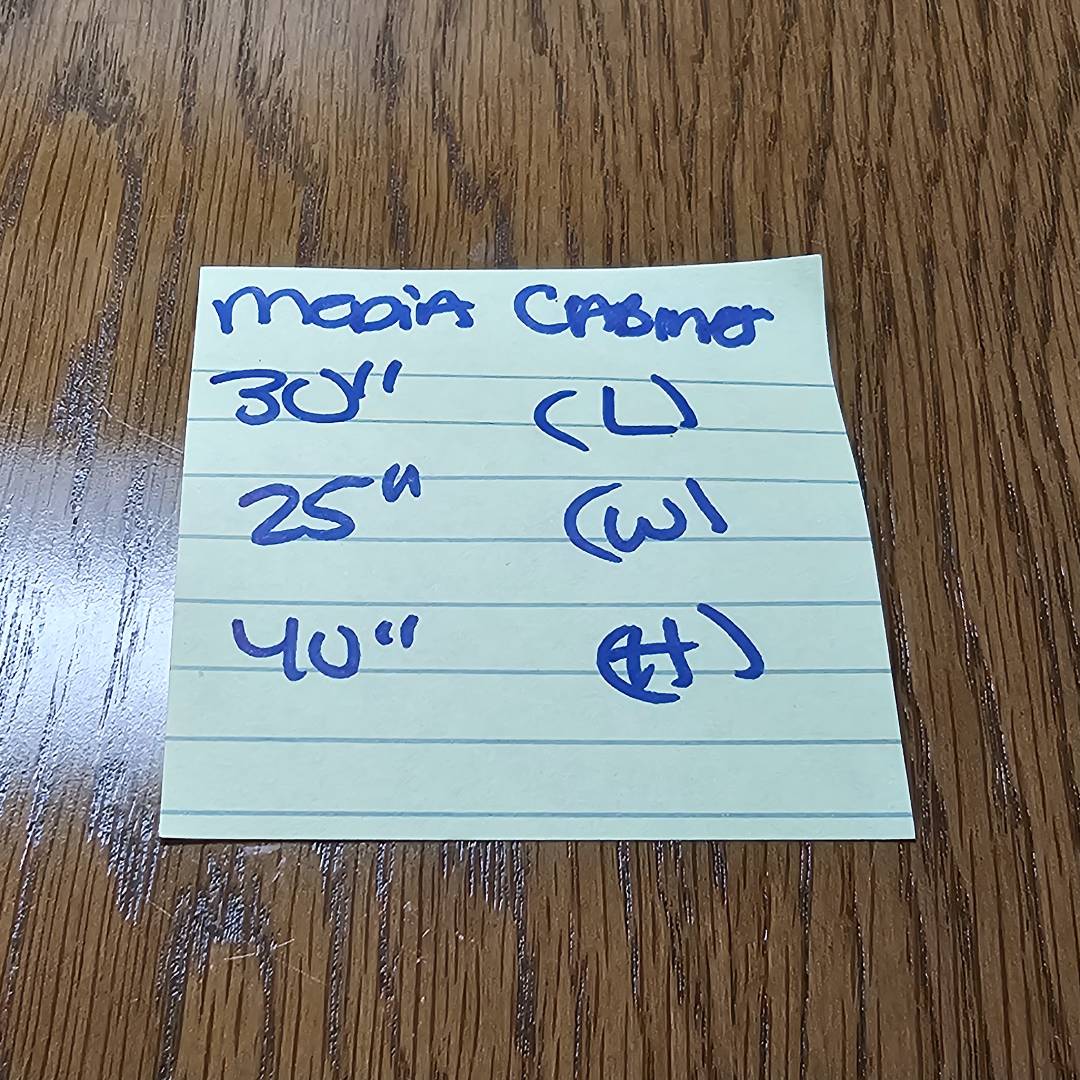 MEDIA CABINET
30" (L)
25" (W)
40" (H)